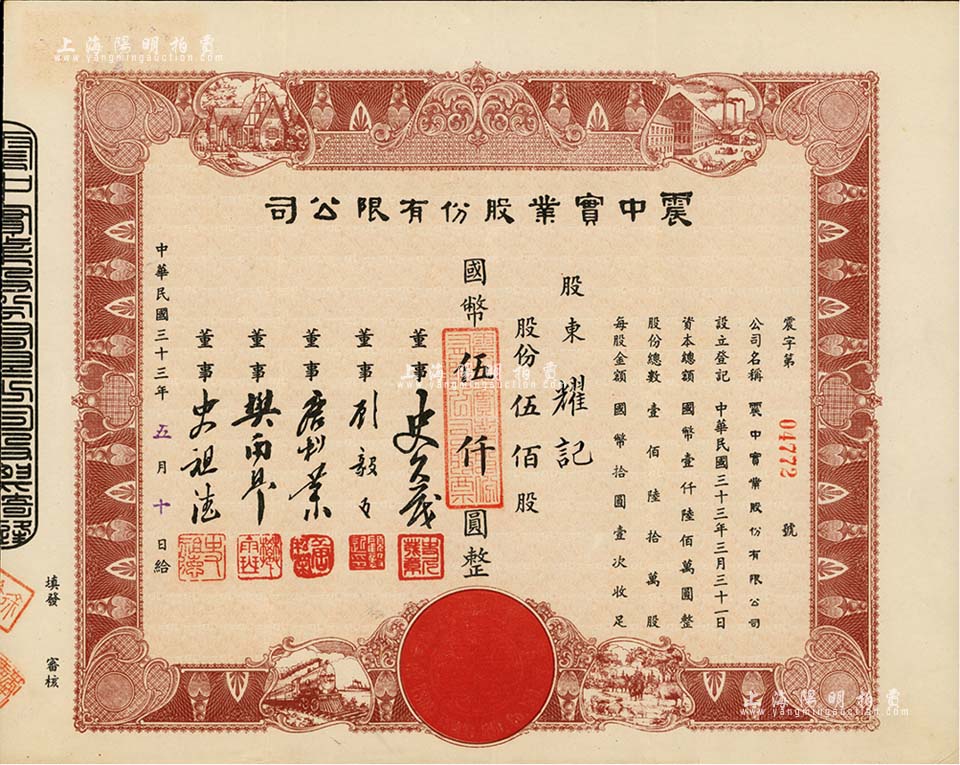 上海陽明拍賣
www.yangmingauction.com
震中實業股份有限公司
震字第 04772 號
公司名稱 震中實業股份有限公司
設立登記 中華民國三十三年三月三十一日
資本總額 國幣壹仟陸佰萬圓整
股份總數 壹佰陸拾萬股
每股金額 國幣拾圓壹次收足
股東 耀記
股份伍佰股
國幣伍仟圓整
董事 史久茂
董事 毅
董事
董事 樊雨
董事 史祖
中華民國三十三年五月十日給
填發 審核
上海陽明拍賣
www.yangmingauction.com
上海陽明拍賣
www.yangmingauction.com